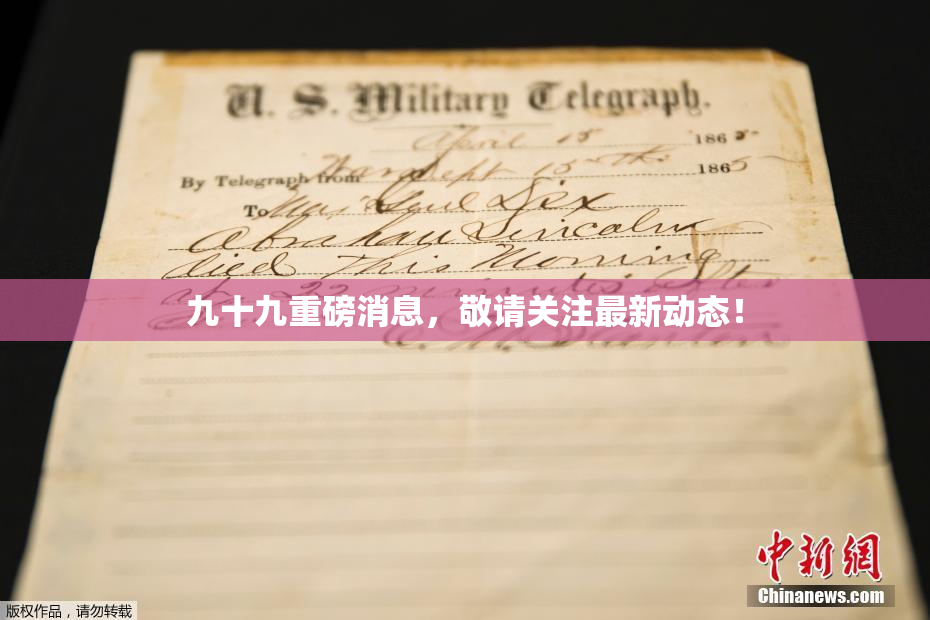 U. S. Military Telegraph.
April 15 1865
By Telegraph from War Dept 15th 1865
To Maj Genl Dix
Abraham Lincoln
died This Morning
at 22 minutes after
九十九重磅消息，敬请关注最新动态！
E. M. Stanton
中新网
Chinanews.com
版权作品，请勿转载